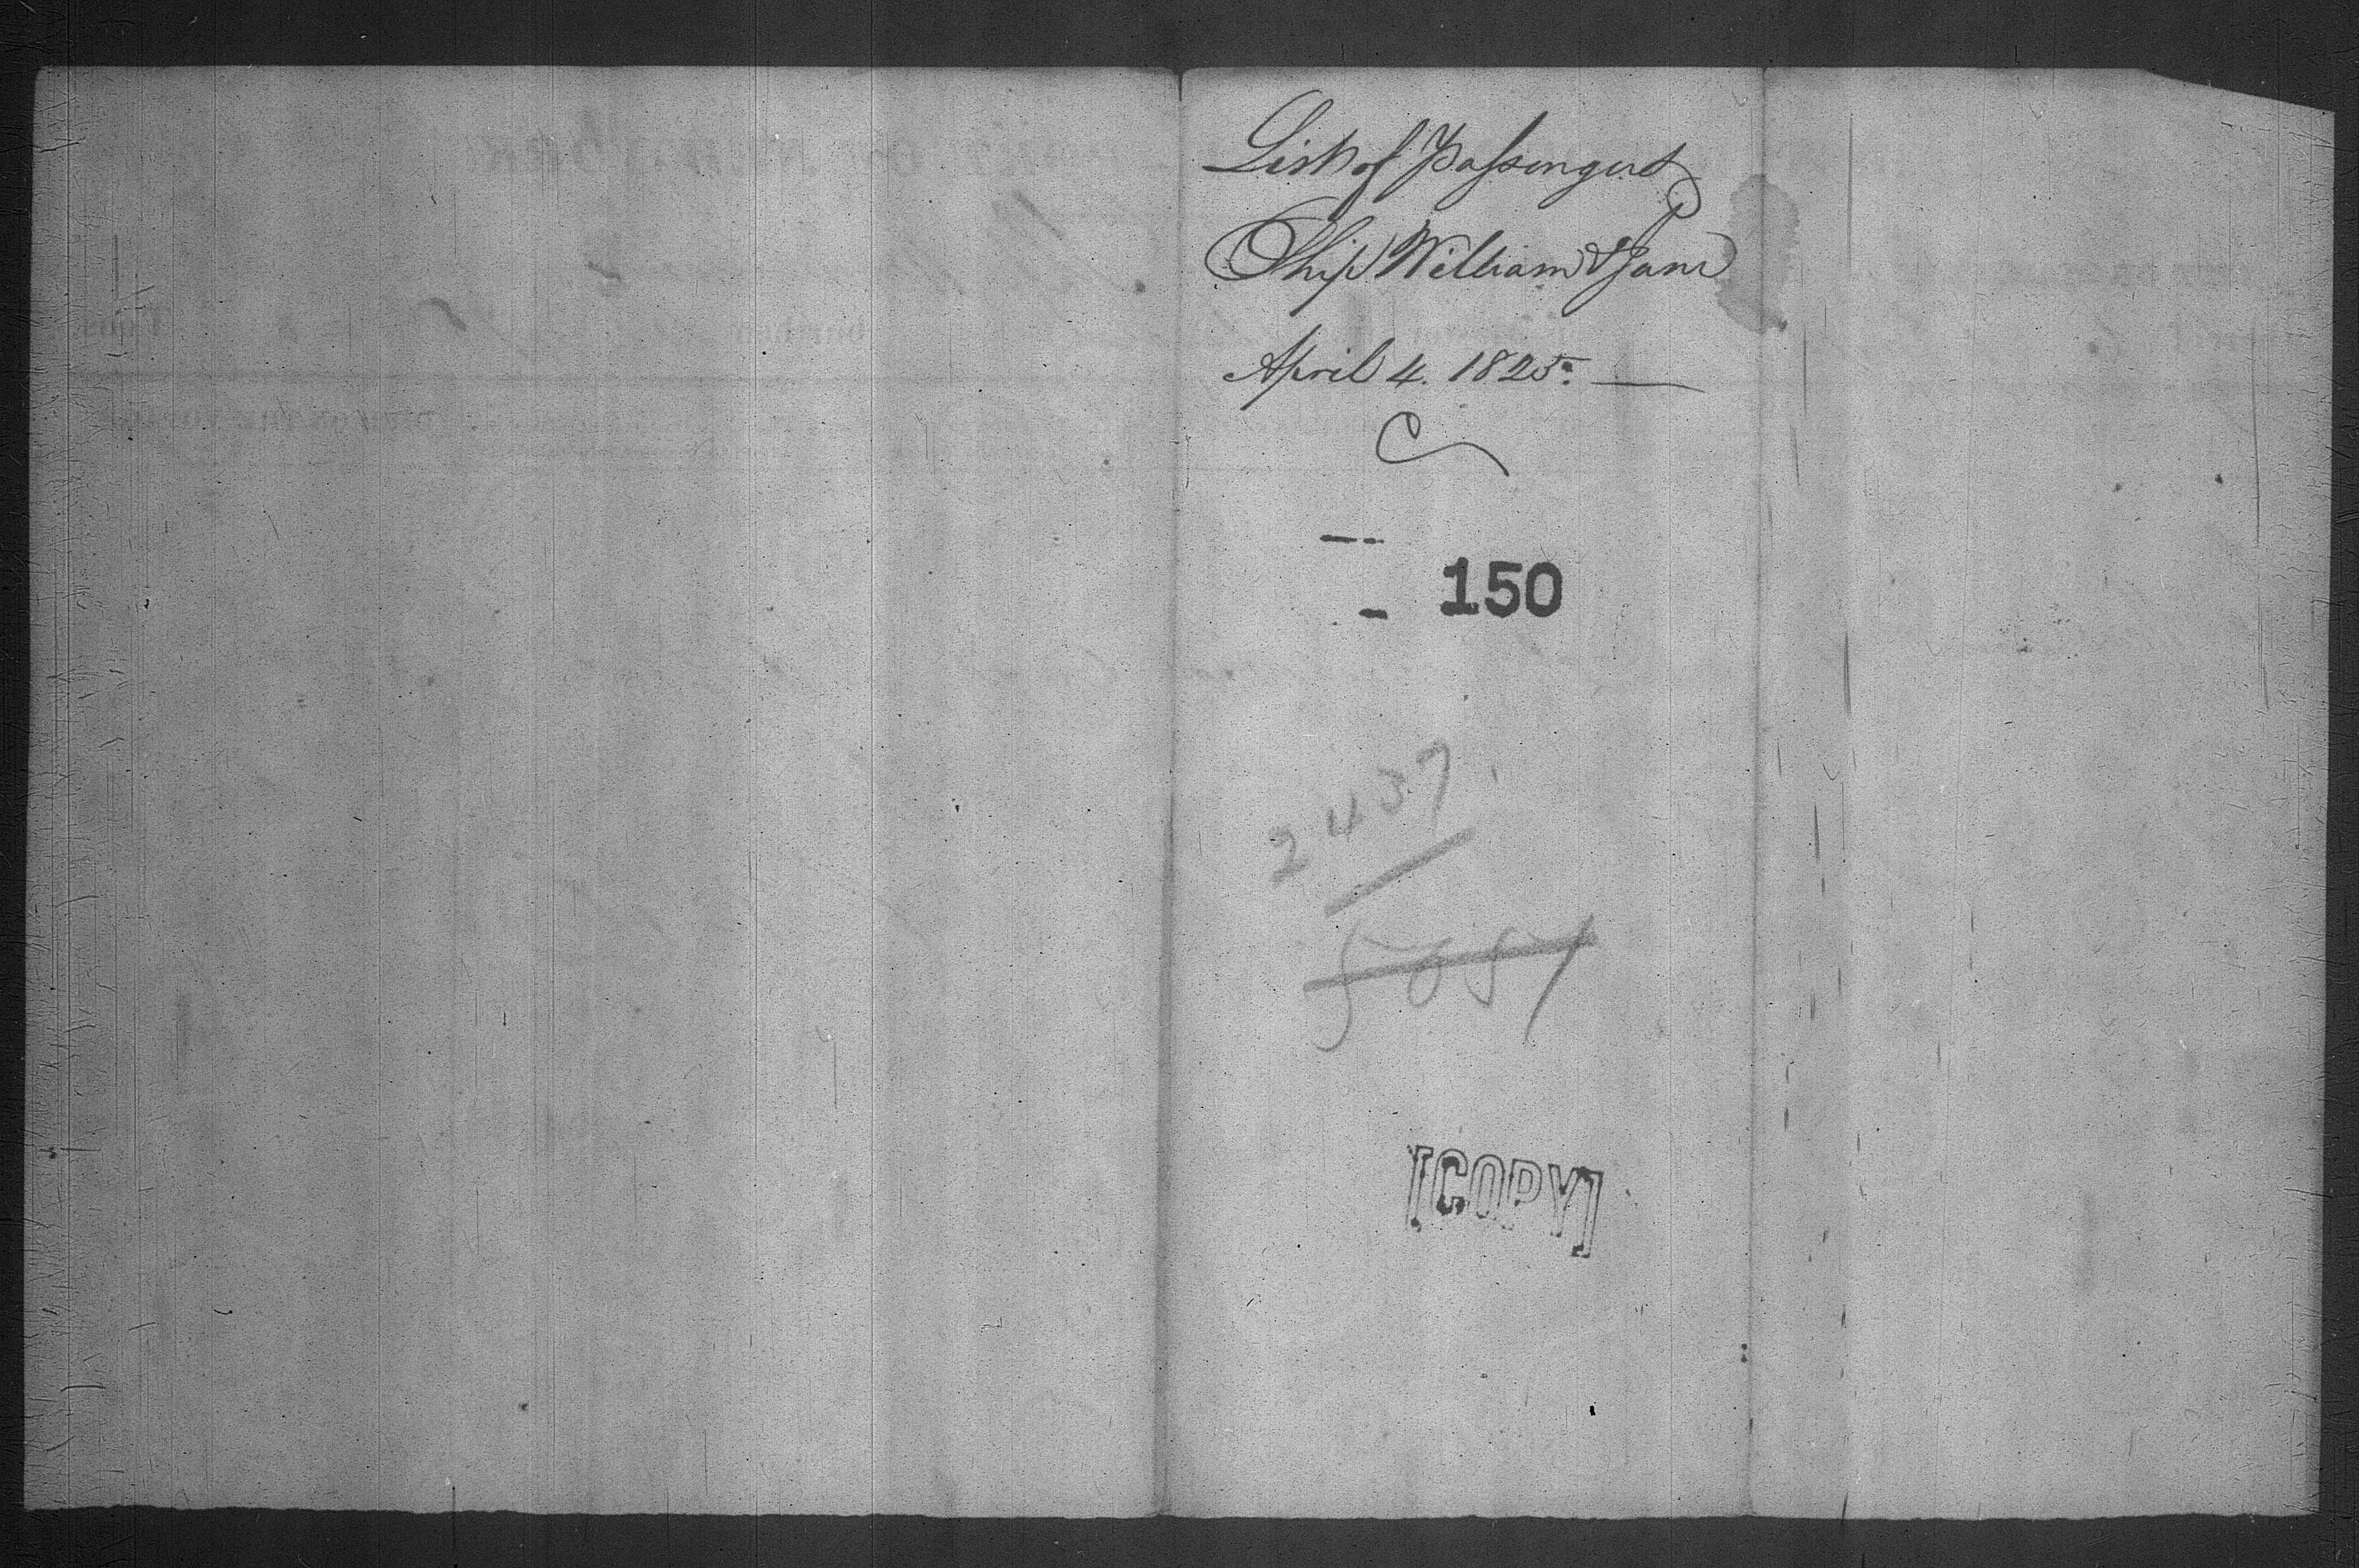 List of Passengers
Ship William & Jane
April 4. 1825.
150
2437
5057
[COPY]